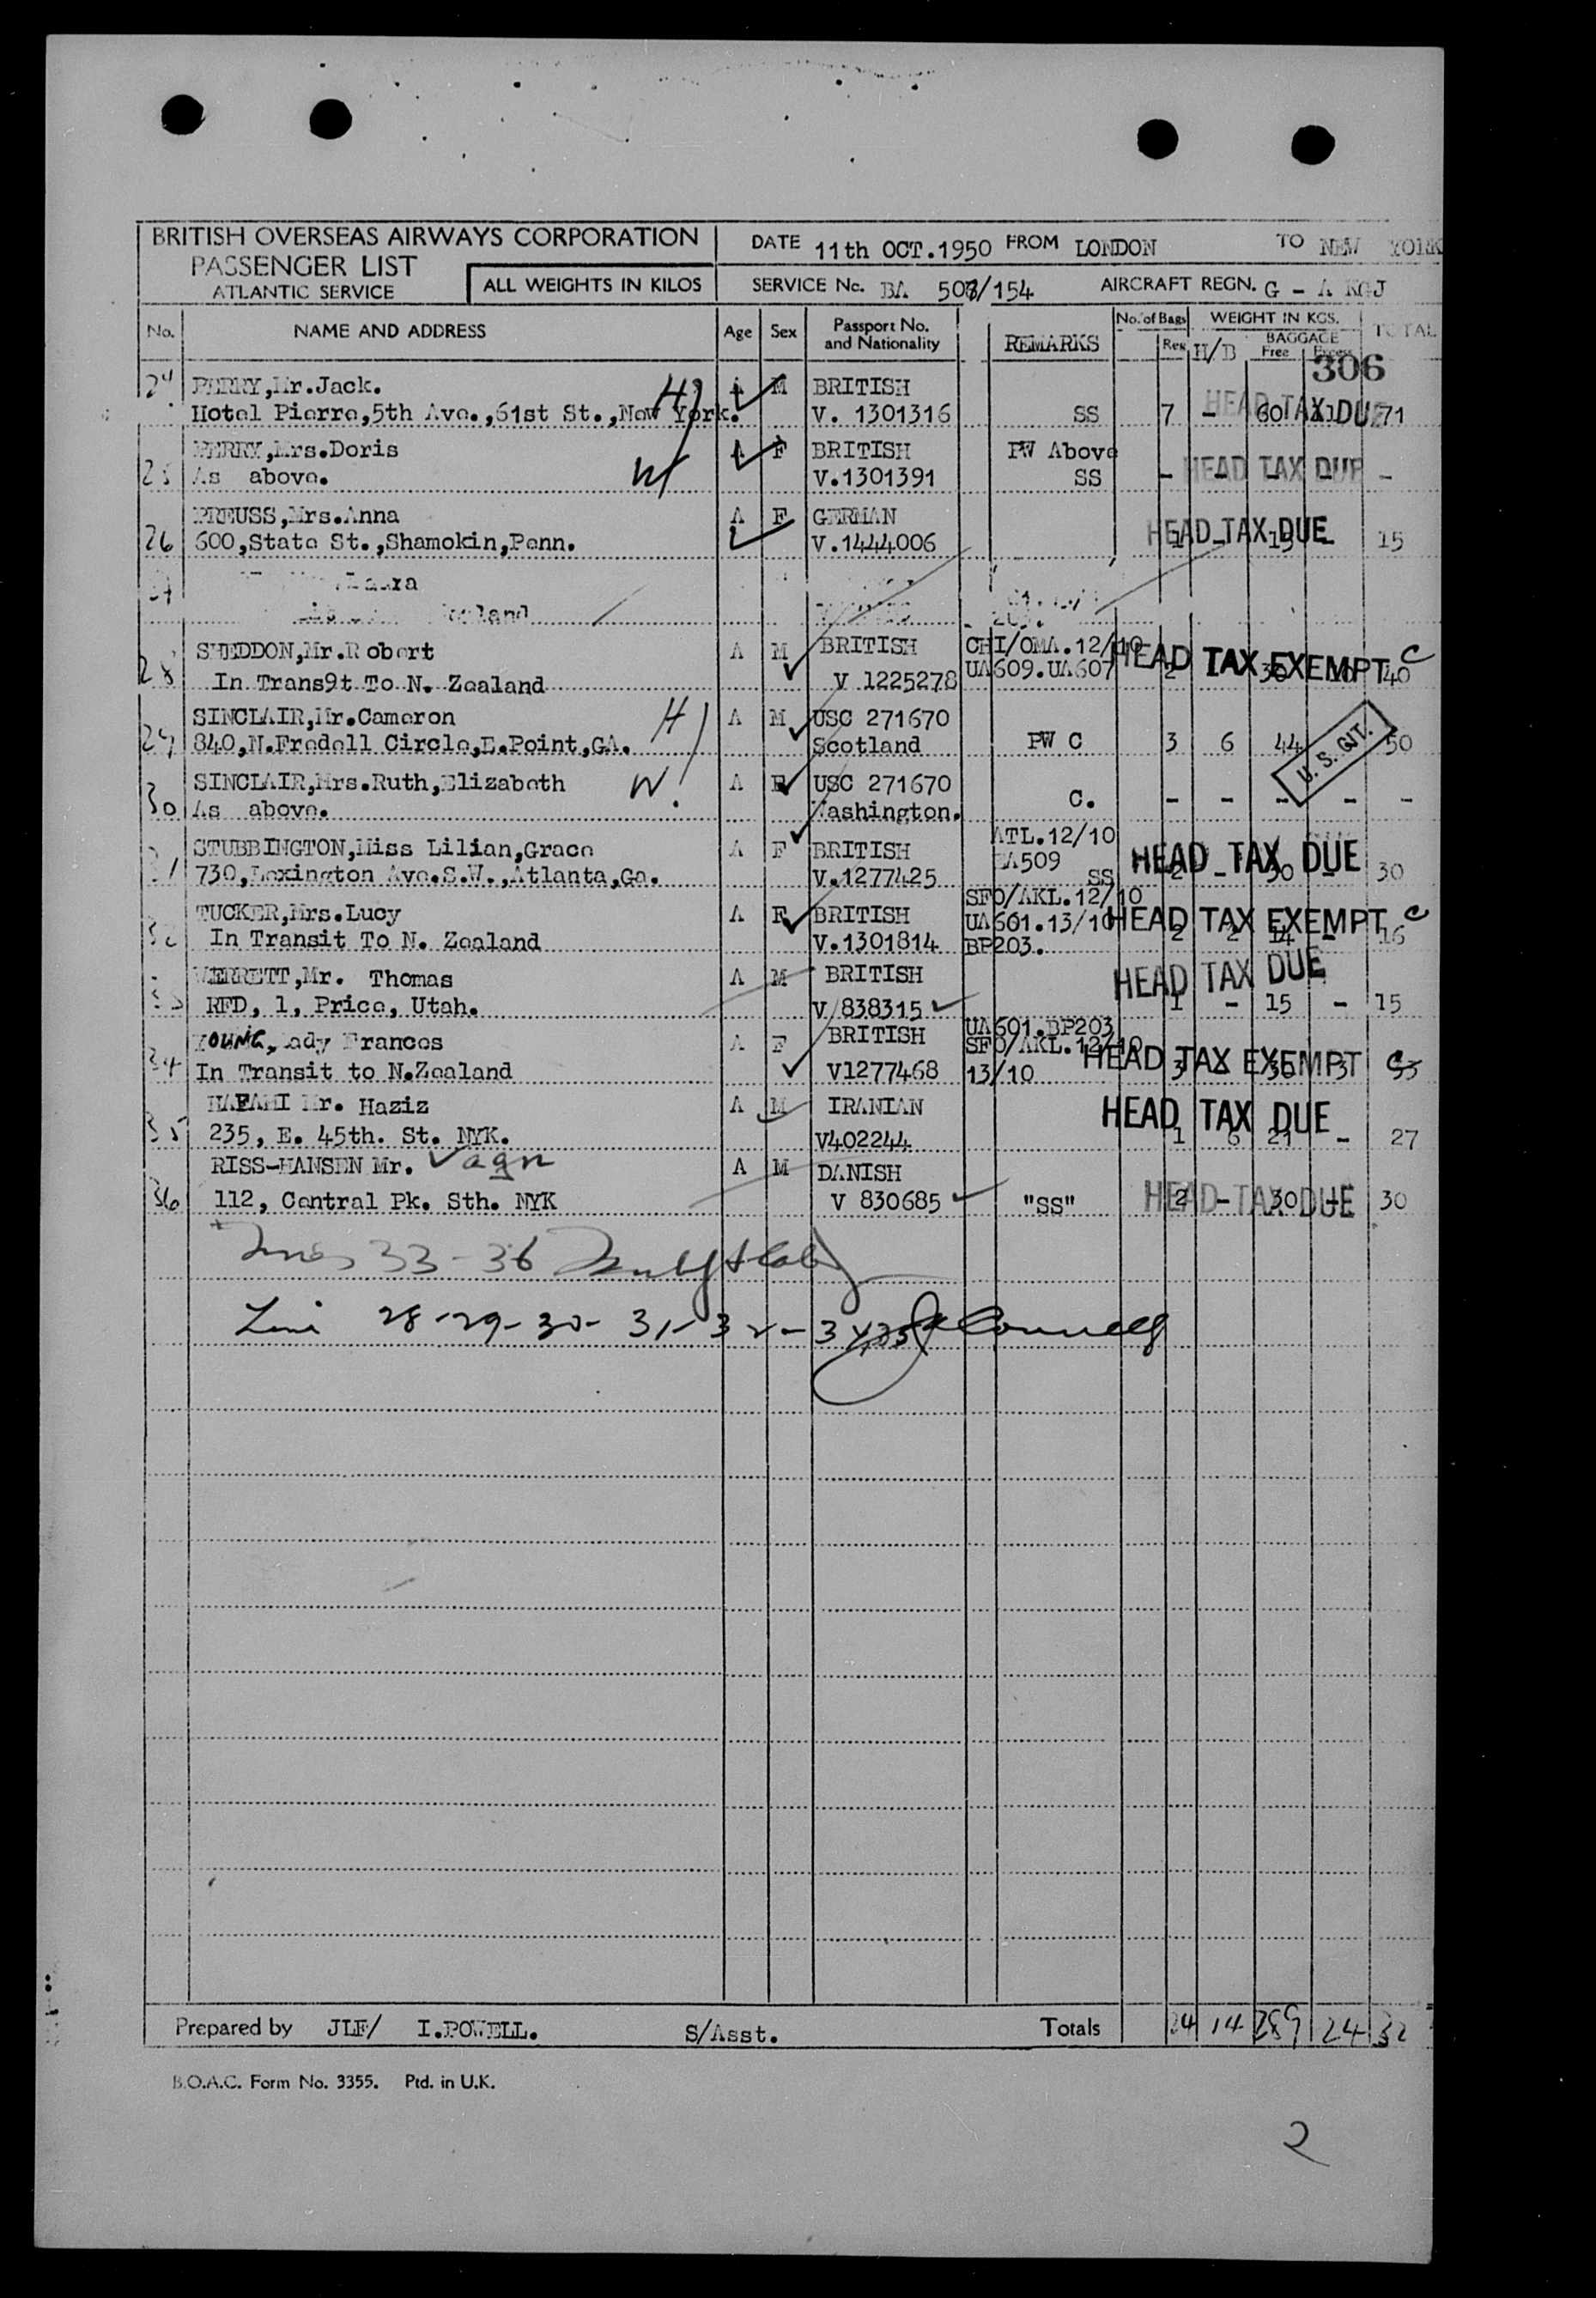 BRITISH OVERSEAS AIRWAYS CORPORATION
PASSENGER LIST
ATLANTIC SERVICE
ALL WEIGHTS IN KILOS
DATE 11th OCT.1950 FROM LONDON TO NEW YORK
SERVICE No. BA 503/154 AIRCRAFT REGN. G - A KGJ
No. NAME AND ADDRESS Age Sex Passport No. and Nationality REMARKS No. of Bags Reg H/B WEIGHT IN KGS. BAGGAGE Free Excess TOTAL
306
24 PERRY,Mr.Jack. H A M BRITISH
Hotel Pierre,5th Ave.,61st St.,New York. V. 1301316 SS 7 - 60 11 71 HEAD TAX DUE
PERRY,Mrs.Doris A F BRITISH PW Above
25 As above. W V.1301391 SS - - - - - HEAD TAX DUE
PREUSS,Mrs.Anna A F GERMAN
26 600,State St.,Shamokin,Penn. V.1444006 1 - 15 - 15 HEAD TAX DUE
SHEDDON,Mr.R obert A M BRITISH CHI/OMA.12/10
28 In Trans9t To N. Zealand V 1225278 UA609.UA607 2 30 10 40 HEAD TAX EXEMPT C
SINCLAIR,Mr.Cameron H A M USC 271670
29 840,N.Fredell Circle,E.Point,GA. Scotland PW C 3 6 44 50 U. S. CIT.
SINCLAIR,Mrs.Ruth,Elizabeth W A F USC 271670
30 As above. Washington. C. - - - - -
STUBBINGTON,Miss Lilian,Grace A F BRITISH ATL.12/10
31 730,Lexington Ave.S.W.,Atlanta,Ga. V.1277425 EA509 SS 2 - 30 - 30 HEAD TAX DUE
TUCKER,Mrs.Lucy A F BRITISH SFO/AKL.12/10
32 In Transit To N. Zealand V.1301814 UA601.13/10 BP203. 2 2 14 - 16 HEAD TAX EXEMPT C
VERRETT,Mr. Thomas A M BRITISH
33 RFD, 1, Price, Utah. V 838315 1 - 15 - 15 HEAD TAX DUE
YOUNG, Lady Frances A F BRITISH UA601.BP203 SFO/AKL.12/10
34 In Transit to N.Zealand V1277468 13/10 3 30 3 HEAD TAX EXEMPT C
Mr. Haziz A M IRANIAN
35 235, E. 45th. St. NYK. V402244 1 6 21 - 27 HEAD TAX DUE
RISS-HANSEN Mr. Vagn A M DANISH
36 112, Central Pk. Sth. NYK V 830685 "SS" 2 - 30 - 30 HEAD TAX DUE
Lines 33-36
Line 28-29-30-31-32-34
Prepared by JLF/ I.POWELL. S/Asst. Totals 24 14 289 24 32
B.O.A.C. Form No. 3355. Ptd. in U.K.
2